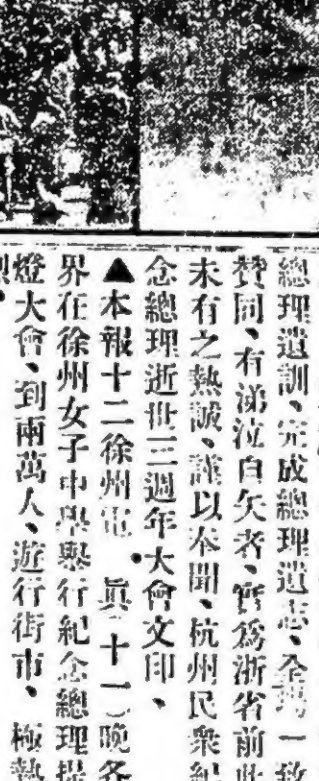 總理遺訓、完成總理遺志、全場一致
贊同、有涕泣自矢者、實爲浙省前此
未有之熱誠、謹以奉聞、杭州民衆紀
念總理逝世三週年大會文印、
▲本報十二徐州電 眞（十一）晚各
界在徐州女子中學舉行紀念總理提
燈大會、到兩萬人、遊行街市、極熱
烈、